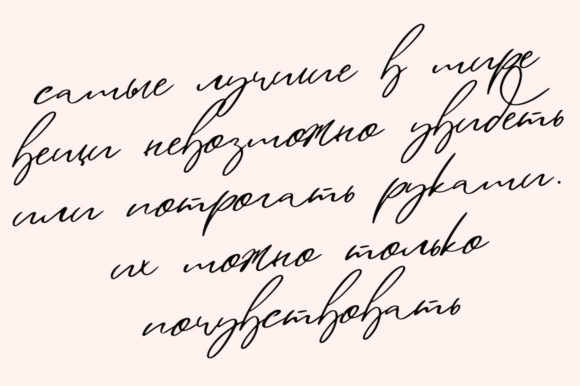 самые лучшие в мире
вещи невозможно увидеть
или потрогать руками.
их можно только
почувствовать